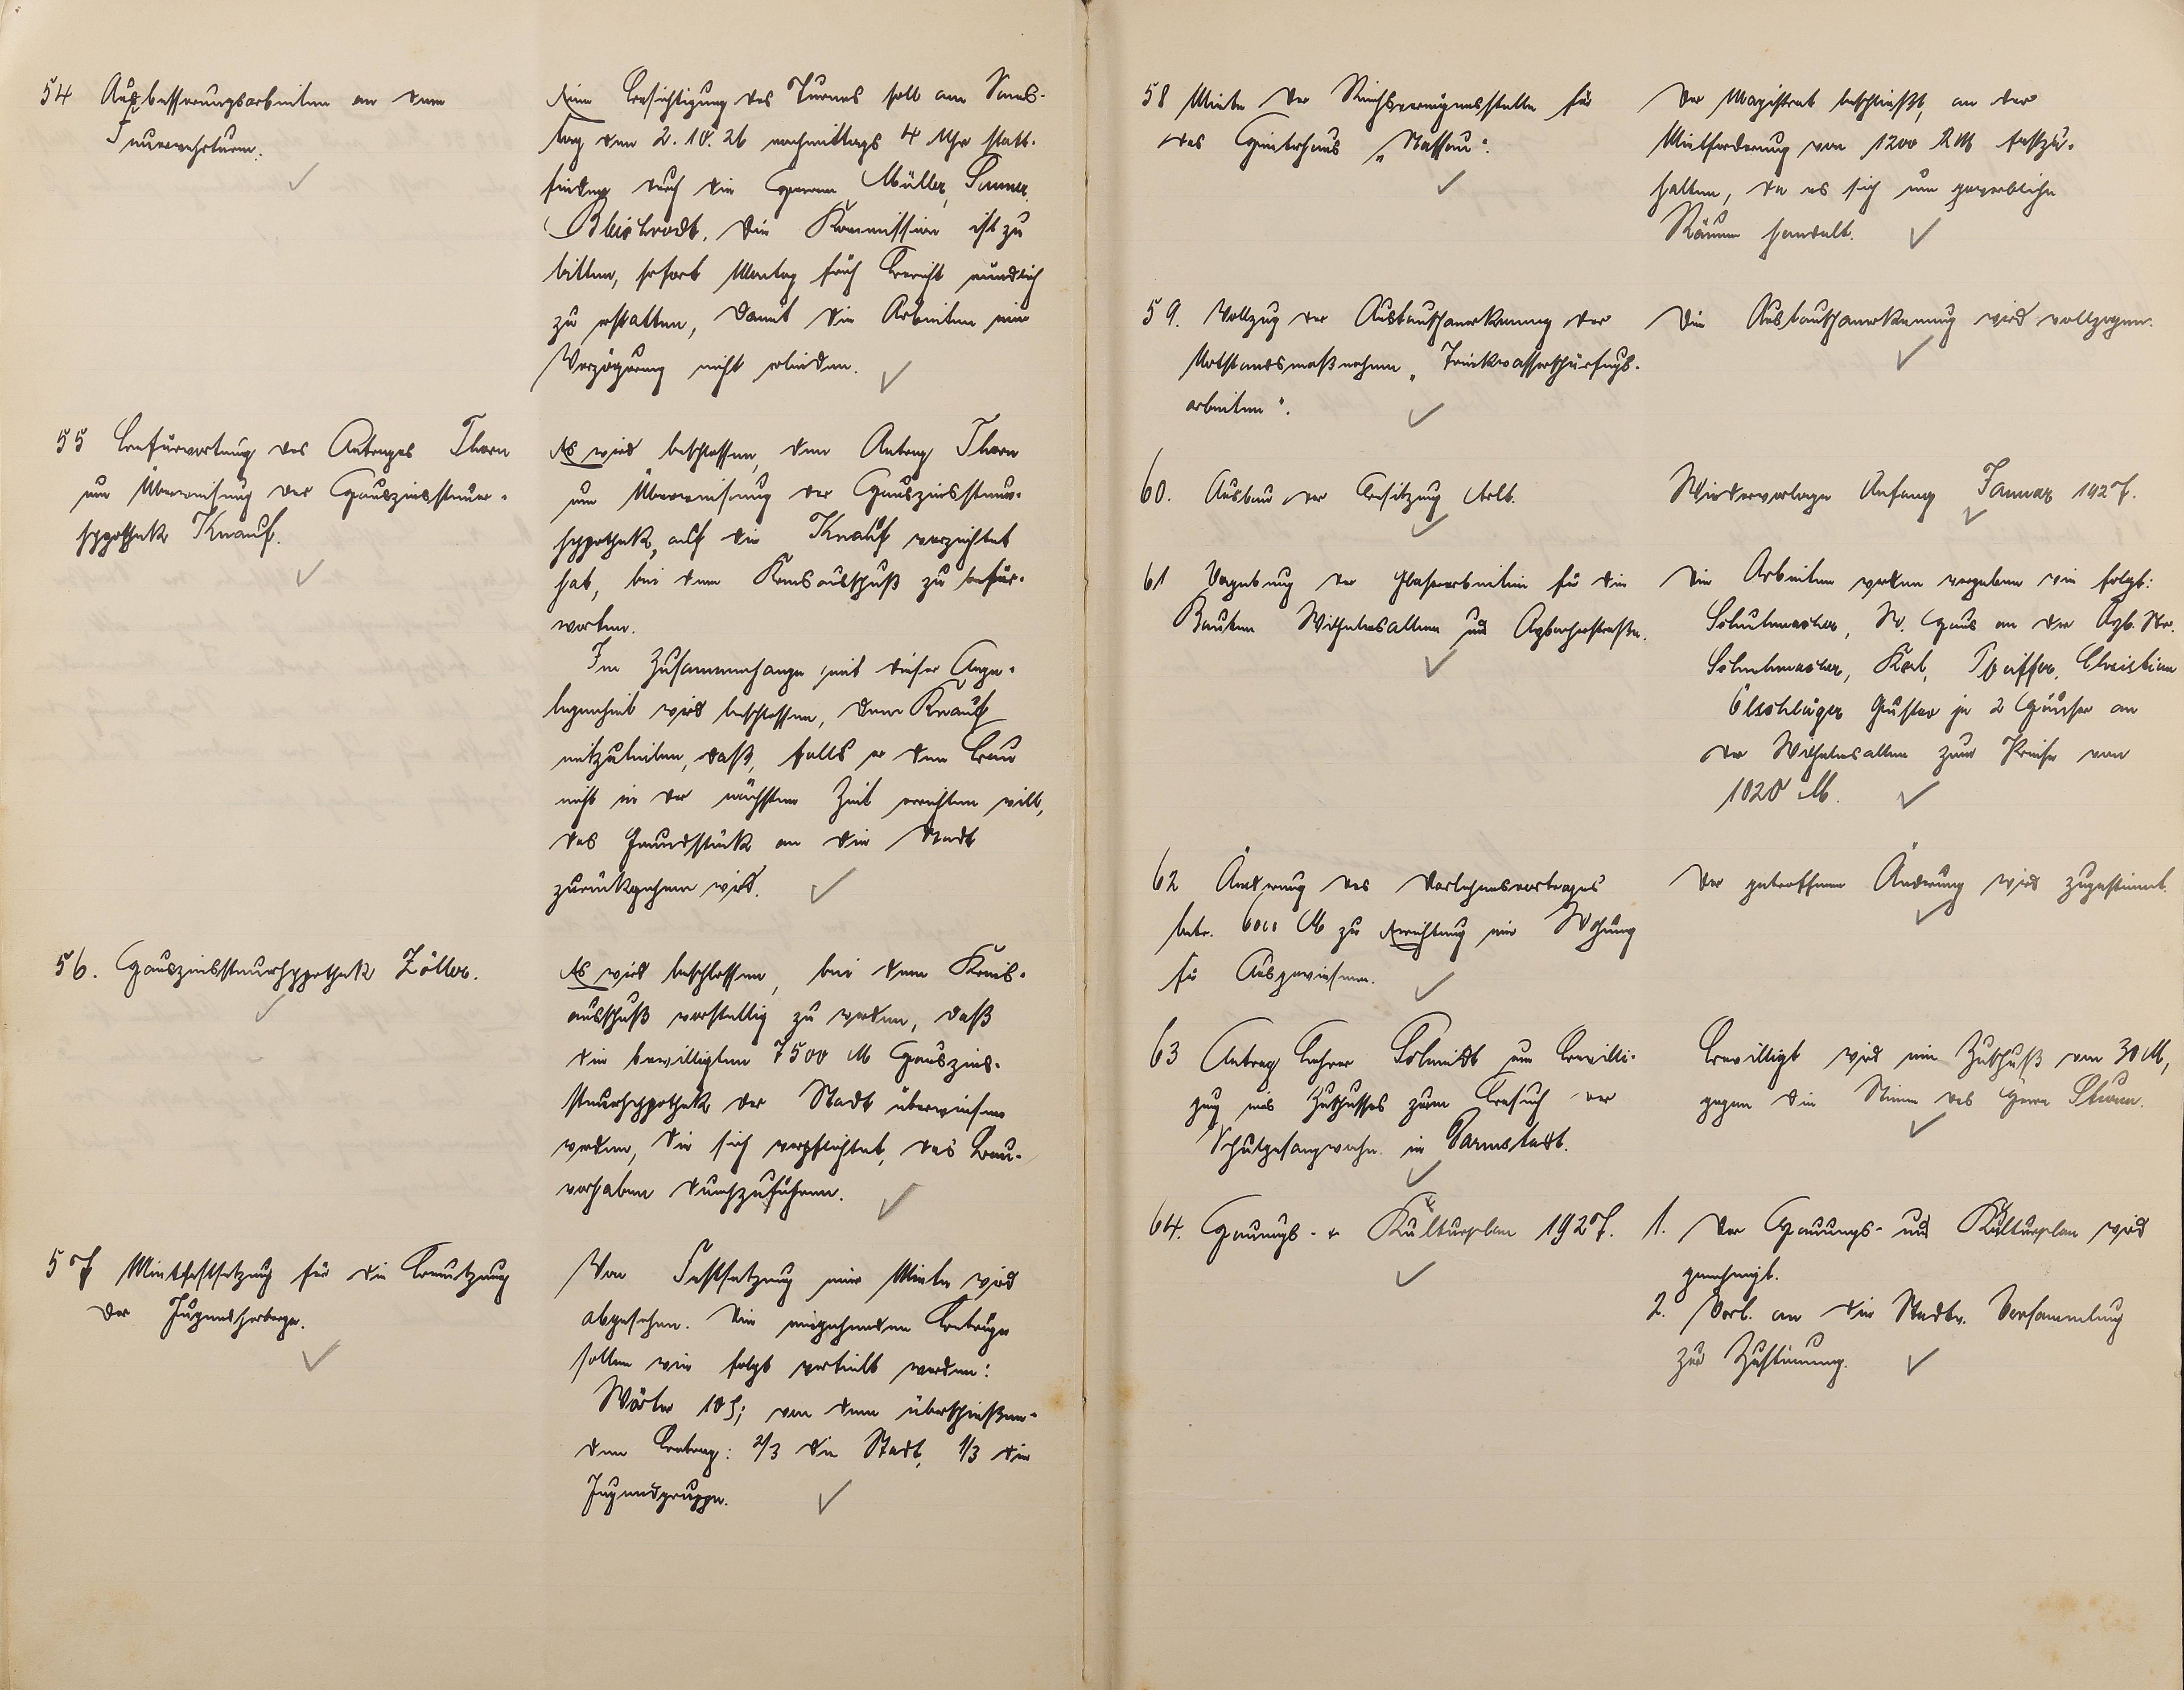 54 Ausbesserungsarbeiten an dem
Feuerwehrturm.
Eine Besichtigung des Turmes soll am Sams-
tag den 2.10.26 nachmittags 4 Uhr statt-
finden durch die Herren Müller,
Bleichrodt. Die Kommission ist zu
bitten, sofort Montag früh Bericht mündlich
zu erstatten, damit die Arbeiten eine
Verzögerung nicht erleiden.
55 Befürwortung des Antrages Thorn
um Überweisung der Hauszinssteuer-
hypothek Knauf.
Es wird beschlossen, den Antrag Thorn
um Überweisung der Hauszinssteuer-
hypothek, auf die Knauf verzichtet
hat, bei dem Kreisausschuß zu befür-
worten.
Im Zusammenhange mit dieser Ange-
legenheit wird beschlossen, dem Knauf
mitzuteilen, daß, falls er den Bau
nicht in der nächsten Zeit errichten will,
das Grundstück an die Stadt
zurückgehen wird.
56. Hauszinssteuerhypothek Zöller.
Es wird beschlossen, bei dem Kreis-
ausschuß vorstellig zu werden, daß
die bewilligten 7500 M Hauszins-
steuerhypothek der Stadt überwiesen
werden, die sich verpflichtet, das Bau-
vorhaben durchzuführen.
57 Mietfestsetzung für die Benutzung
der Jugendherberge.
Von Festsetzung einer Miete wird
abgesehen. Die eingehenden Beträge
sollen wie folgt verteilt werden:
Wärter 10 ₰; von dem überschießen-
den Betrag: 2/3 die Stadt, 1/3 die
Jugendgruppe.
58 Miete der Reichsvermögensstelle für
das Hinterhaus „Nassau“.
Der Magistrat beschließt, an der
Mietforderung von 1200 RM festzu-
halten, da es sich um gewerbliche
Räume handelt.
59. Vollzug der Austauschanerkennung der
Notstandsmaßnahmen „Trinkwasserschürfungs-
arbeiten“.
Die Austauschanerkennung wird vollzogen.
60. Ausbau der Besitzung Arlt.
Wiedervorlage Anfang Januar 1927.
61 Vergebung der Glaserarbeiten für die
Bauten Wilhelmsallee und
Die Arbeiten werden vergeben wie folgt:
Schuhmacher, W. Haus an der
Schuhmacher, Karl, Pfeiffer, Christian
Ölschläger Gustav je 2 Häuser an
der Wilhelmsallee zum Preise von
1020 M.
62 Änderung des Darlehnsvertrages
betr. 6000 M zu Errichtung einer Wohnung
für Ausgewiesene.
Der getroffenen Änderung wird zugestimmt.
63 Antrag Lehrer Schmidt um Bewilli-
gung eines Zuschusses zum Besuch der
Schulgesangwoche in Darmstadt.
Bewilligt wird ein Zuschuß von 30 M,
gegen die Stimme des Herrn Sturm.
64. Hauungs- & Kulturplan 1927.
1. Der Hauungs- und Kulturplan wird
genehmigt.
2. Vorl. an die Stadtv. Versammlung
zur Zustimmung.